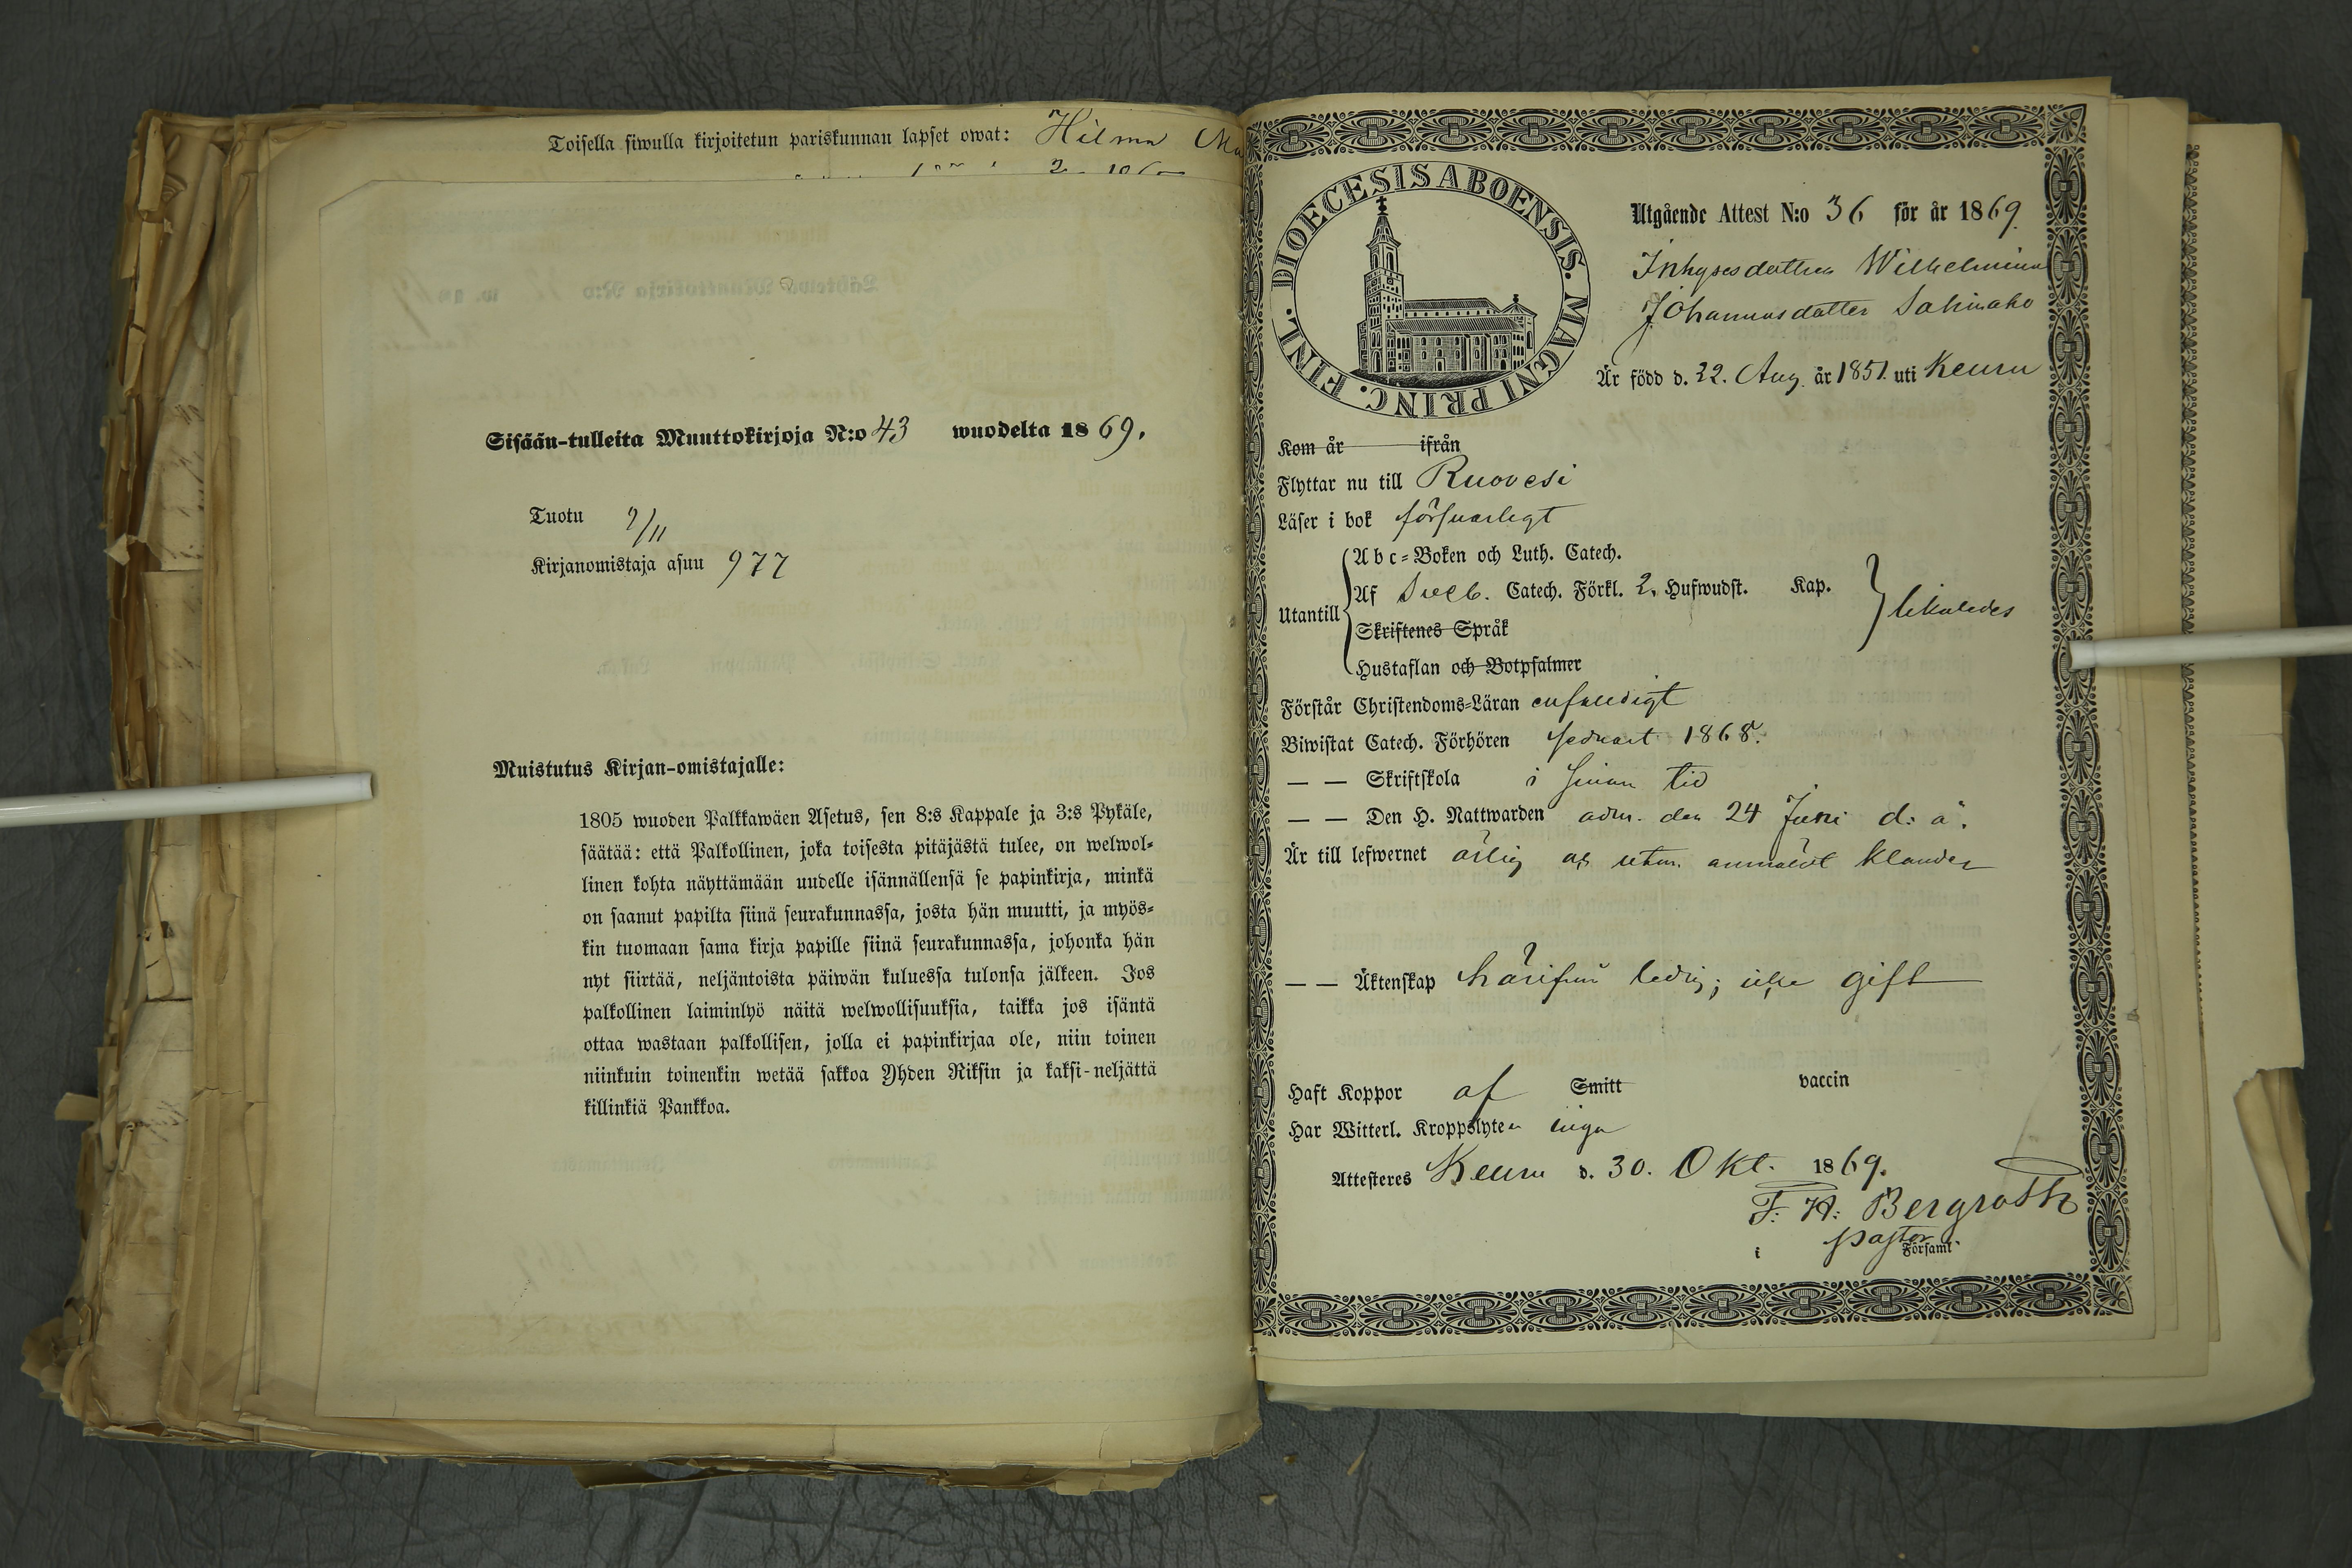 Toisella siwulla kirjoitetun pariskunnan lapset owat: Hilma Ma
Sisään-tulleita Muuttokirjoja N:o 43 wuodelta 1869.
Tuotu 9/11
Kirjanomistaja asuu 977
Muistutus Kirjan-omistajalle:
1805 wuoden Palkkawäen Asetus, sen 8:s Kappale ja 3:s Pykäle,
säätää: että Palkollinen, joka toisesta pitäjästä tulee, on welwol-
linen kohta näyttämään uudelle isännällensä se papinkirja, minkä
on saanut papilta siinä seurakunnassa, josta hän muutti, ja myös-
kin tuomaan sama kirja papille siinä seurakunnassa, johonka hän
nyt siirtää, neljäntoista päiwän kuluessa tulonsa jälkeen. Jos
palkollinen laiminlyö näitä welwollisuuksia, taikka jos isäntä
ottaa wastaan palkollisen, jolla ei papinkirjaa ole, niin toinen
niinkuin toinenkin wetää sakkoa Yhden Riksin ja kaksi-neljättä
killinkiä Pankkoa.
DIOECESIS ABOENSIS. MAGNI PRINC. FINL.
Utgående Attest N:o 36 för år 1869.
Inhysesdottren Wilhelmina
Johannesdotter Sahinaho
Är född d. 22. Aug. år 1851. uti Keuru
Kom år ifrån
Flyttar nu till Ruovesi
Läser i bok försvarligt
Utantill
Abc-Boken och Luth. Catech.
Af Sveb. Catech. Förkl. 2. Hufwudst. Kap.
Skriftenes Språk
Hustaflan och Botpsalmer
likaledes
Förstår Christendoms-Läran enfaldigt
Biwistat Catech. Förhören sednast 1868.
— — Skriftskola i sinom tid
— — Den H. Nattwarden adm. den 24 Juni d: å:
Är till lefwernet ärlig och utan anmäldt klander
— — Äktenskap härifrån ledig; icke gift
Haft Koppor af Smitt vaccin
Har Witterl. Kroppslyten inga
Attesteres Keuru d. 30. Okt. 1869.
F: H: Bergroth
pastor
i Församl.